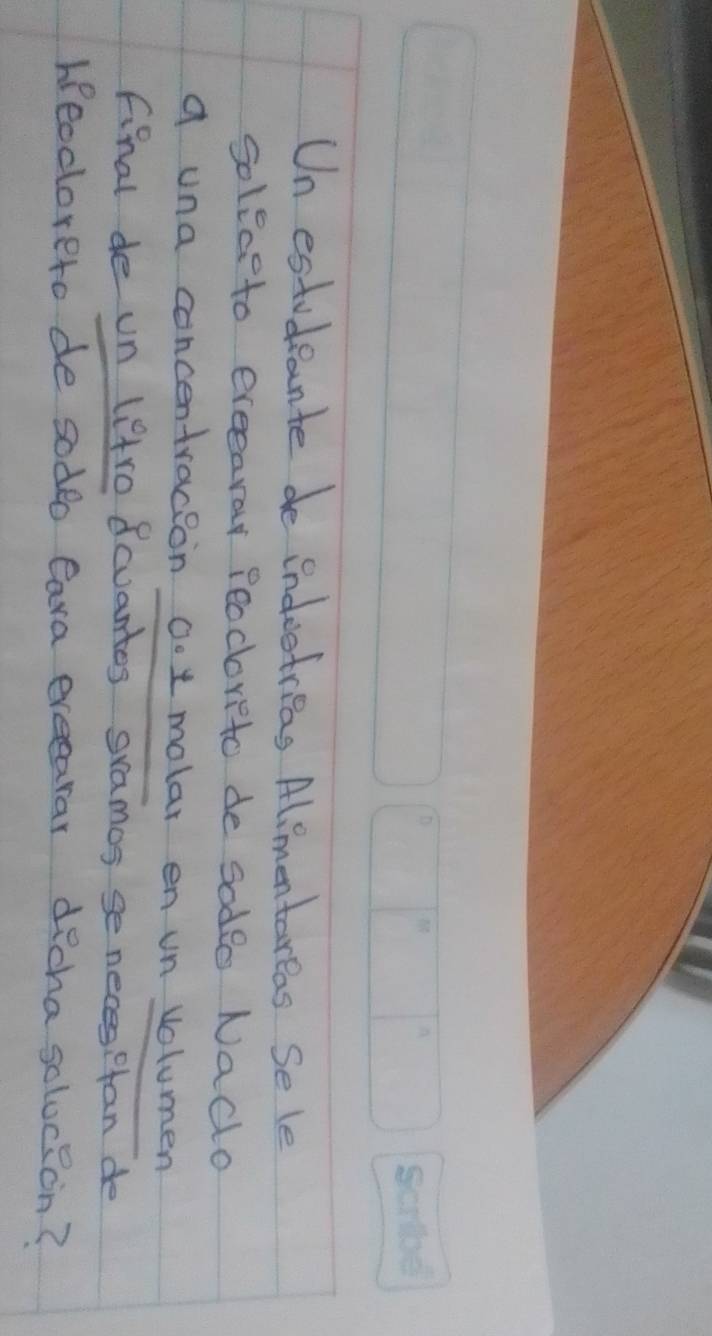 D M A
Scribe
Un estudiante de industrias Alimentarias Se le
solicito preparar ipoclorito de sodio NaClO
a una concentracion 0.1 molar en un volumen
Final de un litro ¿cuantos gramos se necesitan de
hipoclorito de sodio para preparar dicha solución?